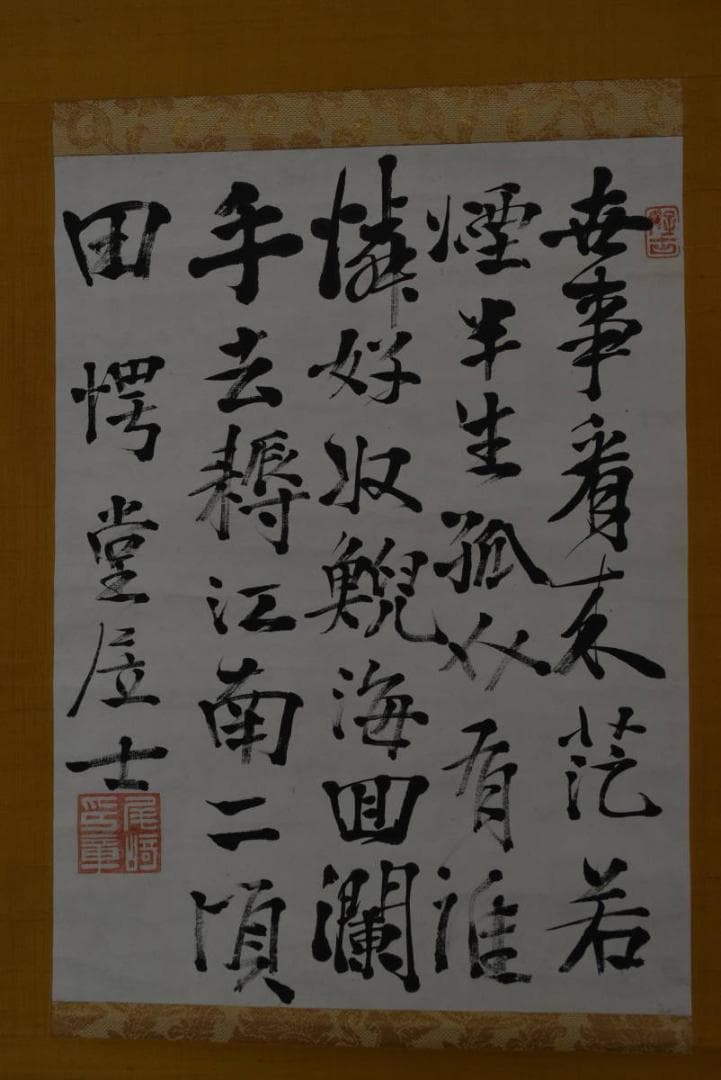 世事看来茫若
煙半生孤有誰
憐好収鯢海回瀾
手去耨江南二頃
田 愕堂居士
尾崎
印章